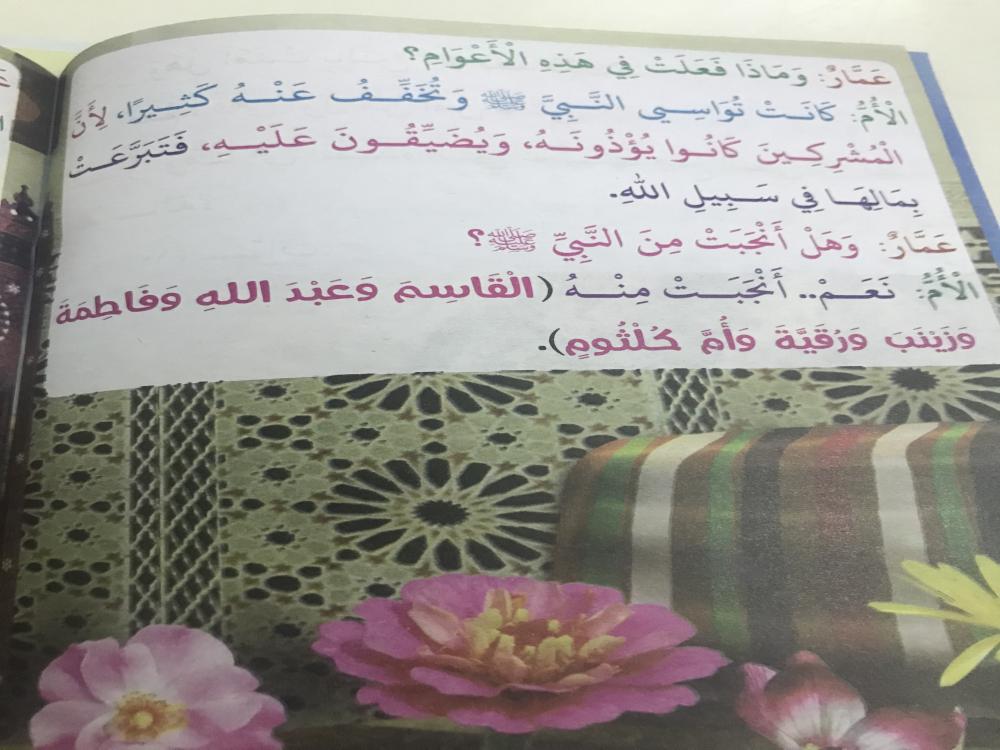 عَمَّارٌ: وَمَاذَا فَعَلَتْ فِي هَذِهِ الْأَعْوَامِ؟
الْأُمُّ: كَانَتْ تُوَاسِي النَّبِيَّ ﷺ وَتُخَفِّفُ عَنْهُ كَثِيرًا، لِأَنَّ
الْمُشْرِكِينَ كَانُوا يُؤْذُونَهُ، وَيُضَيِّقُونَ عَلَيْهِ، فَتَبَرَّعَتْ
بِمَالِهَا فِي سَبِيلِ اللهِ.
عَمَّارٌ: وَهَلْ أَنْجَبَتْ مِنَ النَّبِيِّ ﷺ؟
الْأُمُّ: نَعَمْ.. أَنْجَبَتْ مِنْهُ (الْقَاسِمَ وَعَبْدَ اللهِ وَفَاطِمَةَ
وَزَيْنَبَ وَرُقَيَّةَ وَأُمَّ كُلْثُومٍ).